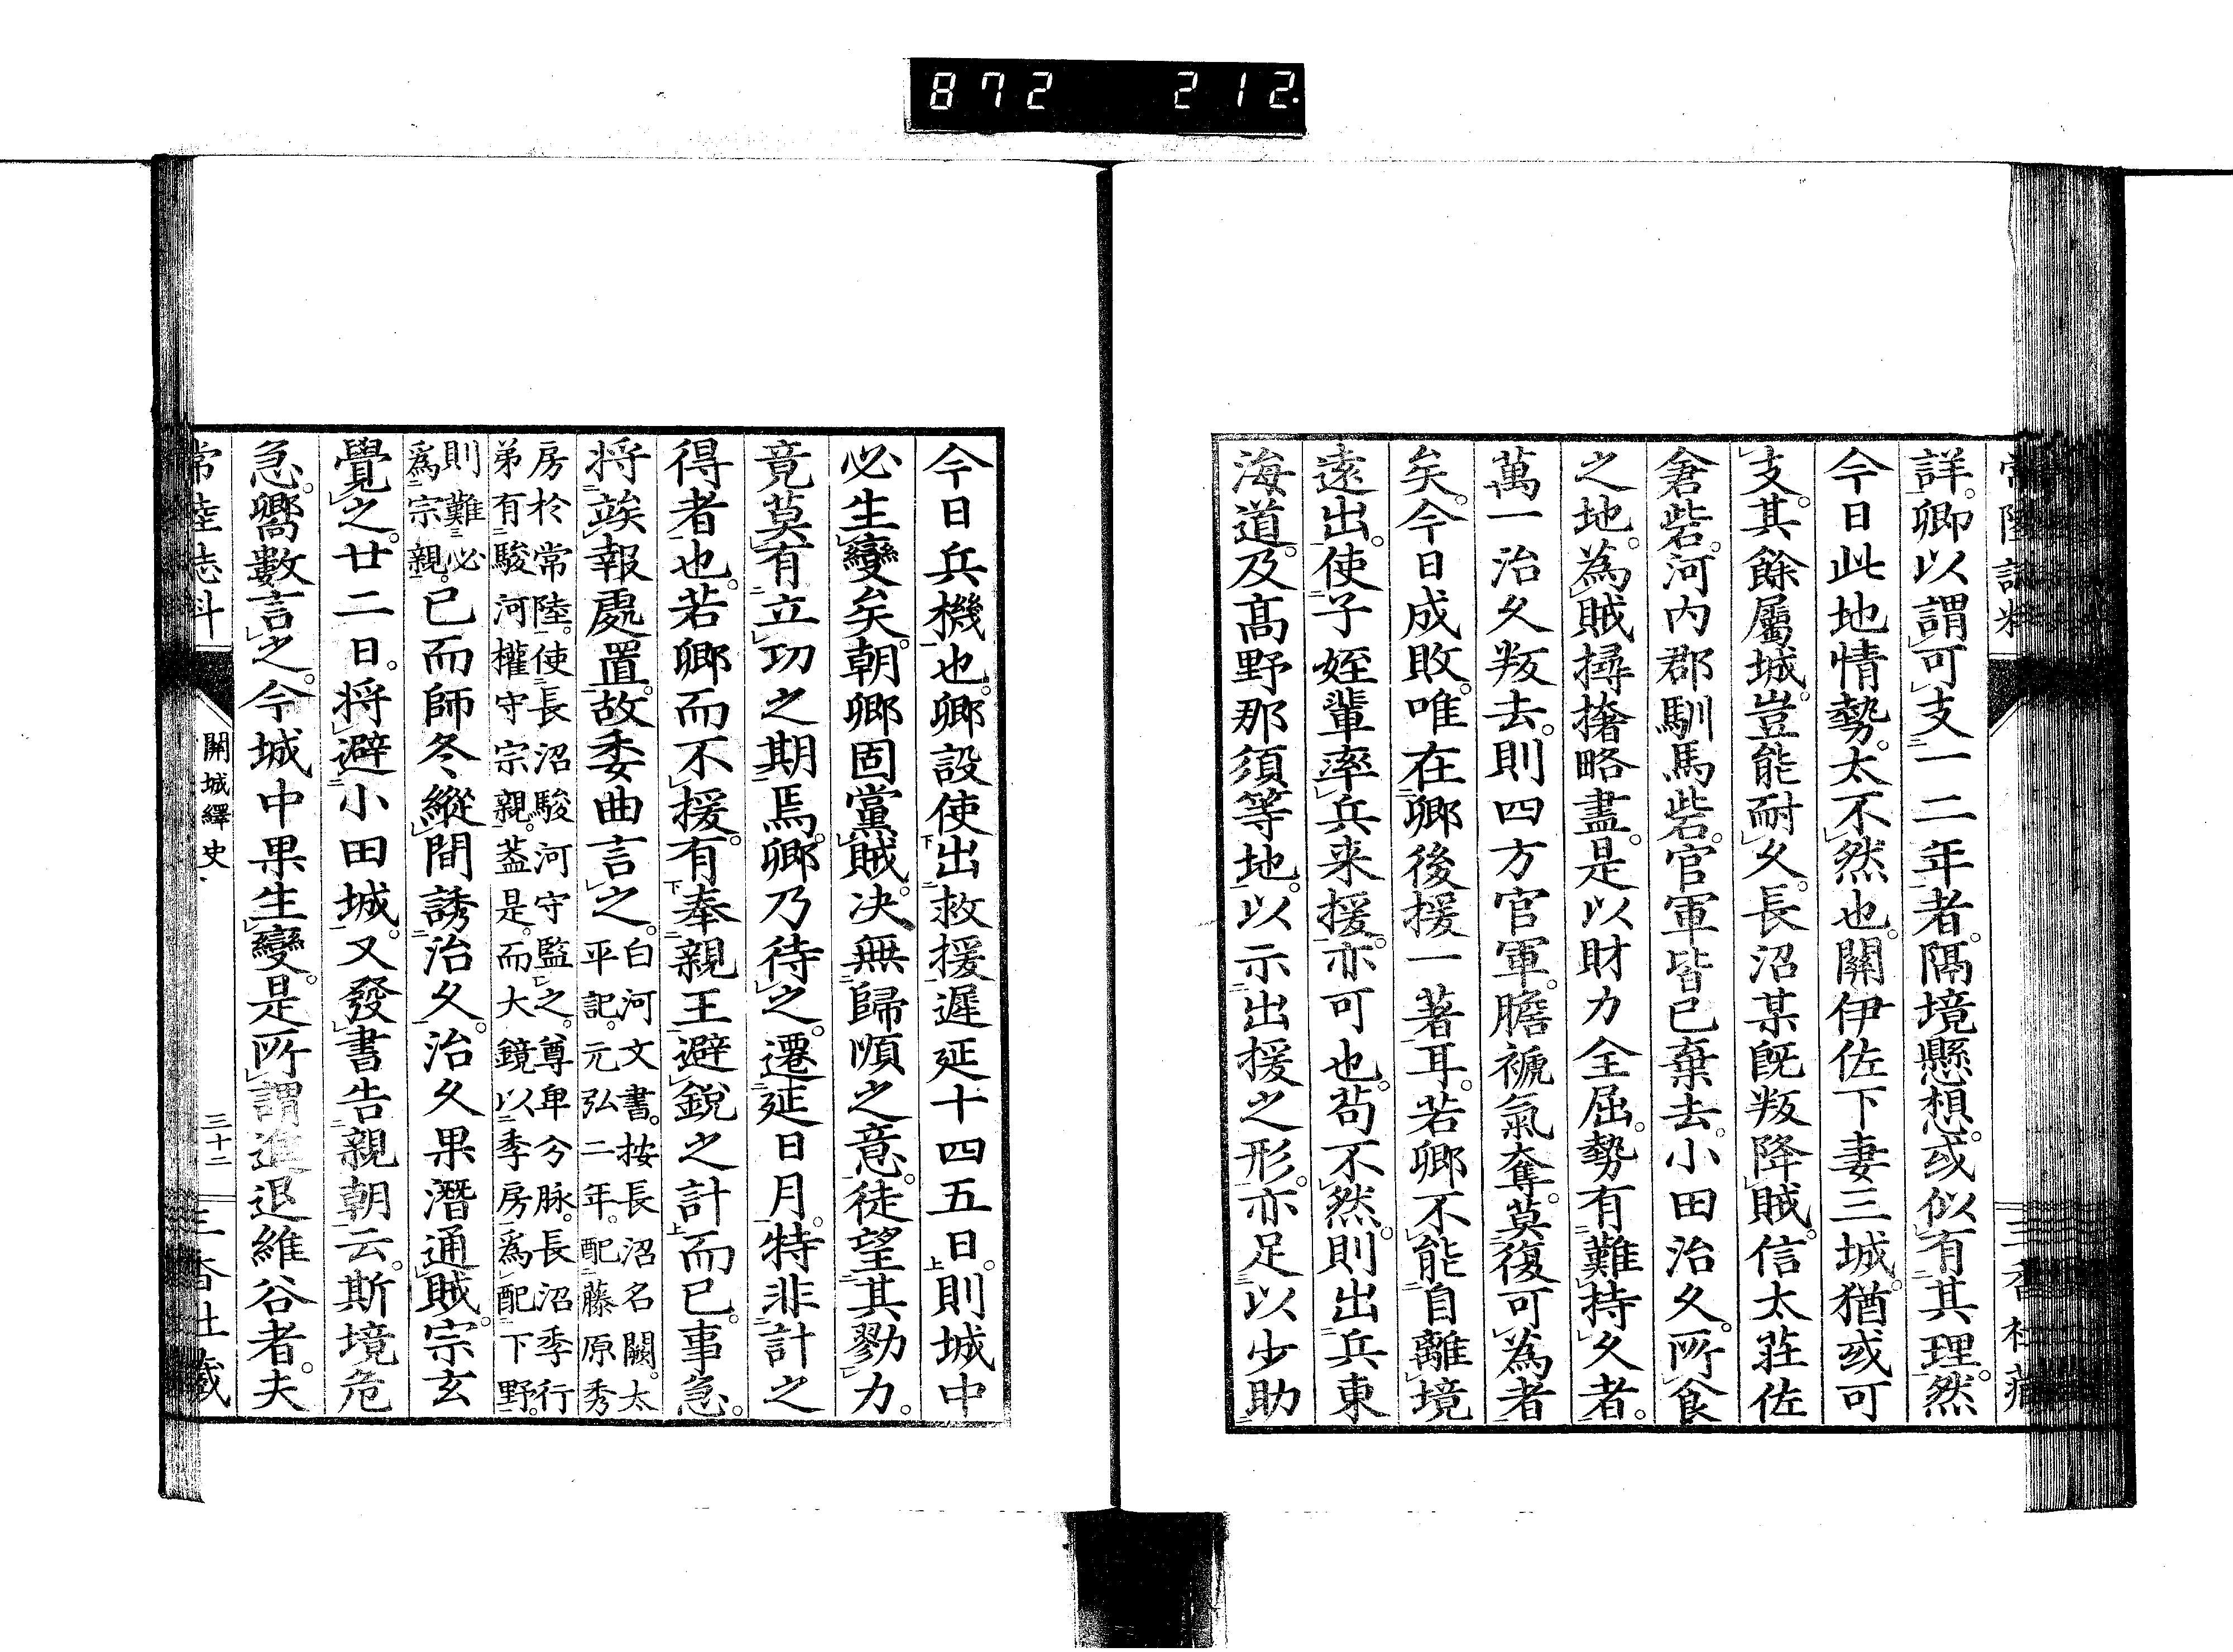 872 212.
詳。卿以謂可支一二年者。隔境懸想。或似有其理。然
今日此地情勢。太不然也。關伊佐下妻三城。猶或可
支。其餘屬城。豈能耐久。長沼某既叛降賊。信太莊佐
倉砦。河內郡馴馬砦。官軍皆已棄去。小田治久。所食
之地。為賊撏撦略盡。是以財力全屈。勢有難持久者。
萬一治久叛去。則四方官軍。膽褫氣奪。莫復可為者
矣。今日成敗。唯在卿後援一著耳。若卿不能自離境
遠出。使子姪輩率兵来援。亦可也。苟不然。則出兵東
海道。及高野那須等地。以示出援之形。亦足以少助
今日兵機也。卿設使出救援遲延十四五日。則城中
必生變矣。朝卿固黨賊。决無歸順之意。徒望其勠力。
竟莫有立功之期焉。卿乃待之。遷延日月。特非計之
得者也。若卿而不援。有奉親王避銳之計而已。事急。
将竢報處置。故委曲言之。白河文書。按長沼名闕。太
平記。元弘二年。配藤原秀
房於常陸。使長沼駿河守監之。尊卑分脉。長沼季行
弟有駿河權守宗親。蓋是。而大鏡以季房為配下野。
則難必
為宗親。已而師冬縱間誘治久。治久果潛通賊。宗玄
覺之。廿二日。将避小田城。又發書告親朝云。斯境危
急。嚮數言之。今城中果生變。是所謂進退維谷者。夫
關城繹史
三十二
常陸志料